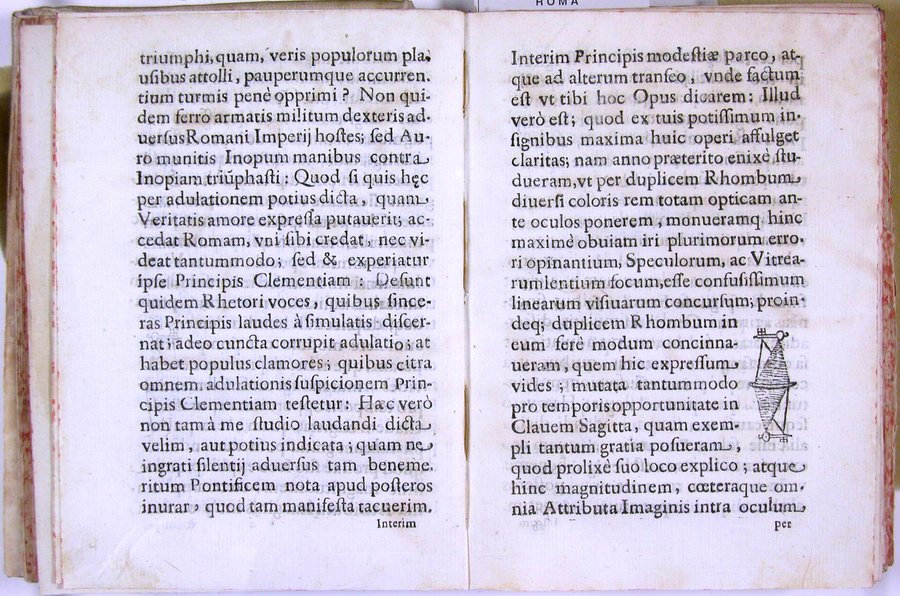 ROMA
triumphi, quam, veris populorum pla.
usibus attolli, pauperumque accurren.
tium turmis penè opprimi? Non qui-
dem ferro armatis militum dexteris ad-
uersus Romani Imperij hostes; sed Au-
ro munitis Inopum manibus contra
Inopiam triũphasti: Quod si quis hęc
per adulationem potius dicta, quam
Veritatis amore expressa putauerit; ac-
cedat Romam, vni sibi credat, nec vi-
deat tantummodo; sed & experiatur
ipse Principis Clementiam: Desunt
quidem Rhetori voces, quibus since-
ras Principis laudes à simulatis discer-
nat; adeo cuncta corrupit adulatio; at
habet populus clamores; quibus citra
omnem adulationis suspicionem Prin-
cipis Clementiam testetur: Hæc verò
non tam à me studio laudandi dicta
velim, aut potius indicata; quam ne
ingrati silentij aduersus tam beneme.
ritum Pontificem nota apud posteros
inurar, quod tam manifesta tacuerim.
Interim
Interim Principis modestiæ parco, at-
que ad alterum transeo, vnde factum
est vt tibi hoc Opus dicarem: Illud
verò est; quod ex tuis potissimum in-
signibus maxima huic operi affulget
claritas; nam anno præterito enixè stu-
dueram, vt per duplicem Rhombum
diuersi coloris rem totam opticam an-
te oculos ponerem, monueramq; hinc
maximè obuiam iri plurimorum erro-
ri opinantium, Speculorum, ac Vitrea-
rum lentium focum, esse confusissimum
linearum visuarum concursum; proin-
deq; duplicem Rhombum in
eum ferè modum concinna-
ueram, quem hic expressum
vides; mutata tantummodo
pro temporis opportunitate in
Clauem Sagitta, quam exem-
pli tantum gratia posueram,
quod prolixè suo loco explico; atque
hinc magnitudinem, cœteraque om-
nia Attributa Imaginis intra oculum
per